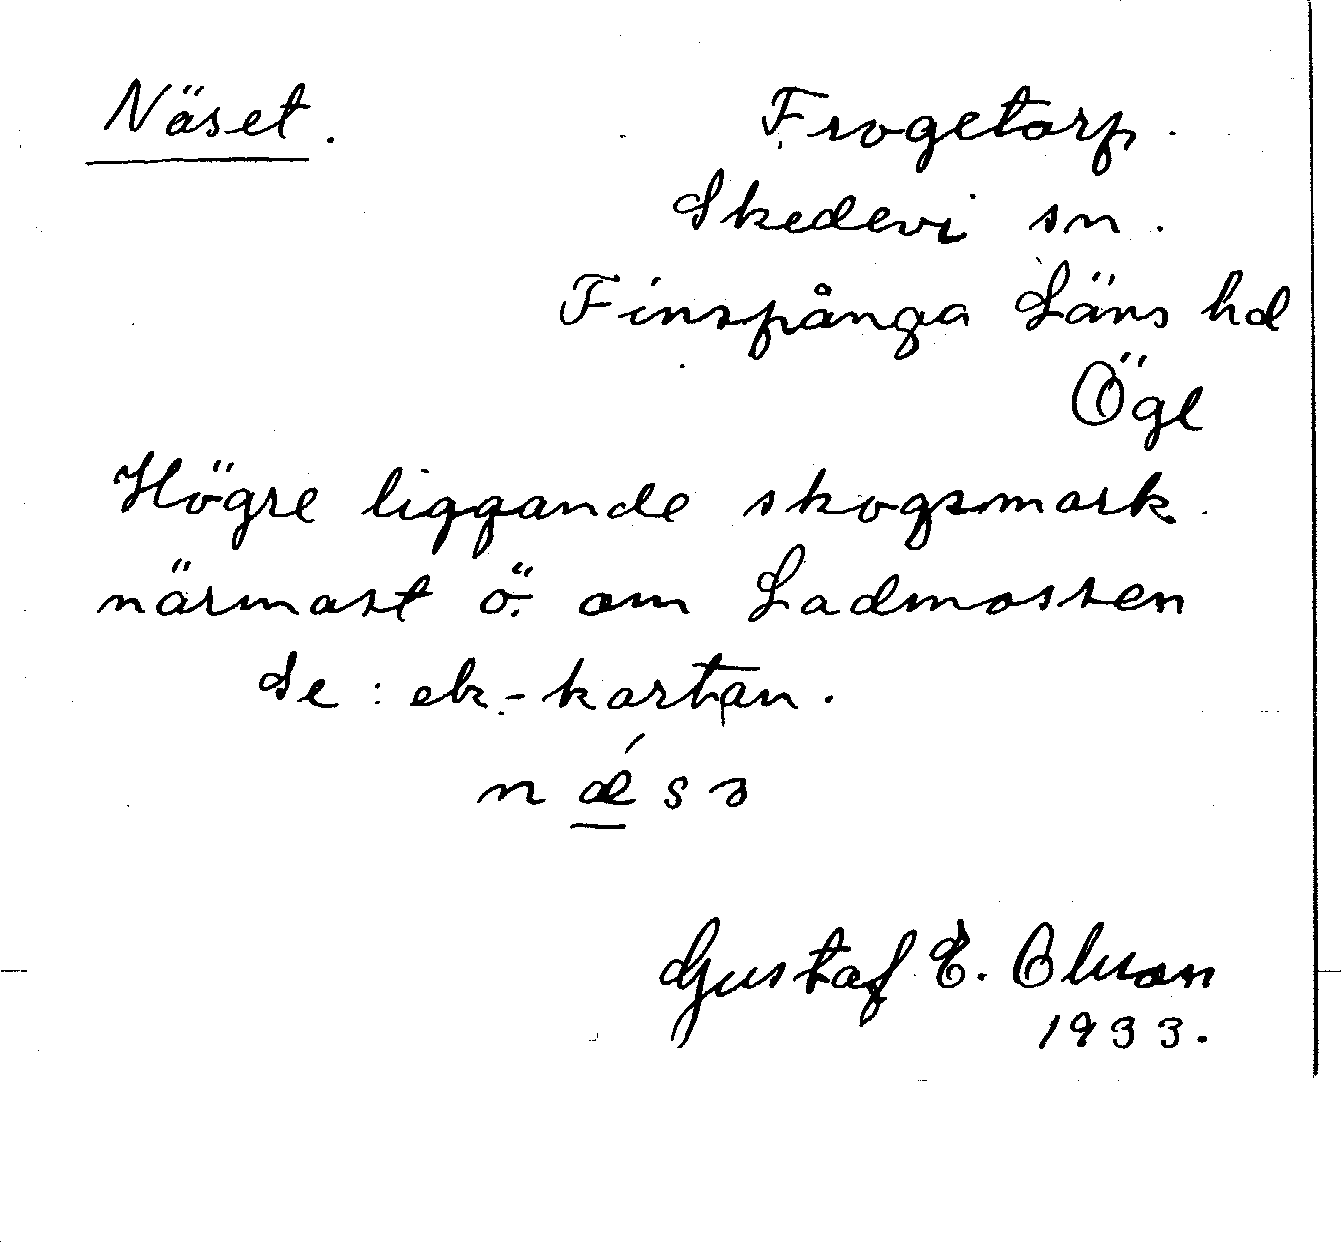 Näset.
Frogetorp.
Skedevi sn.
Finspånga Läns hd
Ögl
Högre liggande skogsmark
närmast ö. om Ladmossen
Se: ek-kartan.
n ǽ s ɜ
Gustaf E. Olsson
1933.